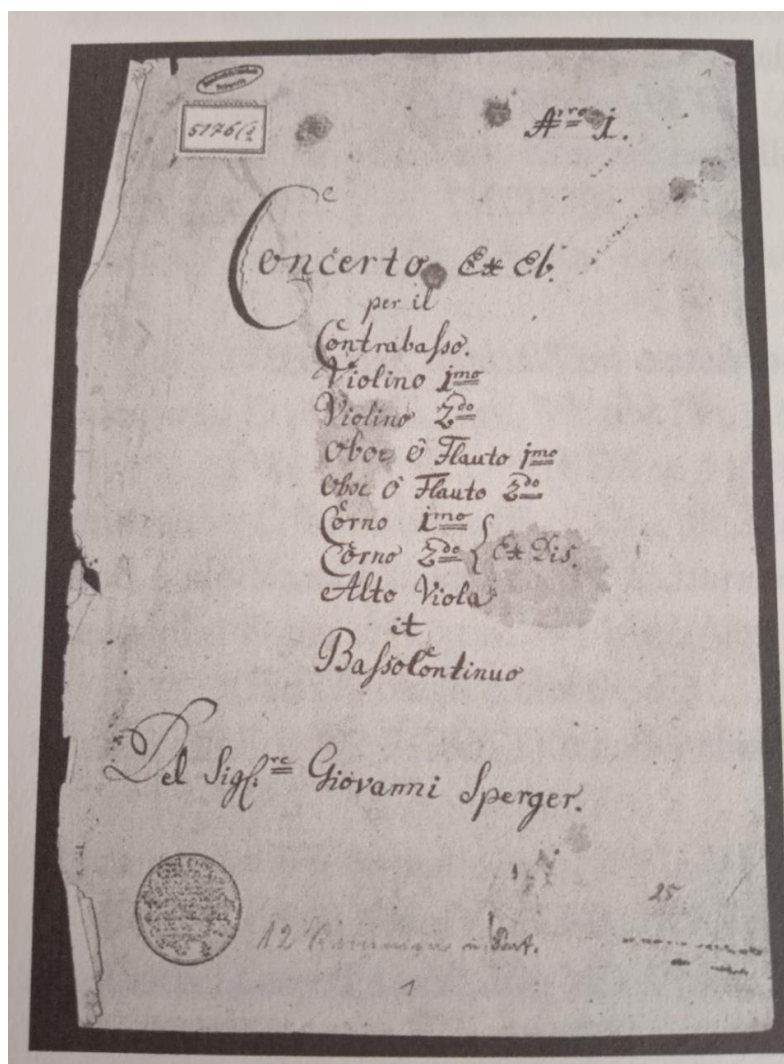 5176/2
No 1.
Concerto Ex Eb.
per il
Contrabasso.
Violino 1mo
Violino 2do
Oboe ô Flauto 1mo
Oboe ô Flauto 2do
Corno 1mo
Corno 2do } Ex Dis.
Alto Viola
it
Basso Continuo
Del Sigl.re Giovanni Sperger.
25
12
1